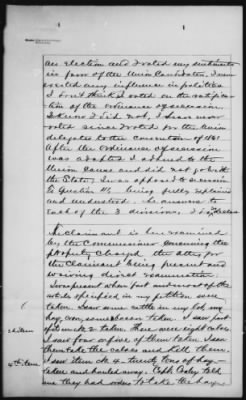 an election and I voted my sentiments
in favor of the Union Candidates. I never
exerted any influence in politics
I don't think I voted on the ratification
of the ordinance of secession
I know I did not, I have never
voted since I voted for the Union
delegates to the convention of 1861
After the ordinance of secession
was adopted I adhered to the
Union cause and did not go with
the State; I was opposed to secession
To Question 41, being fully explained
and understood. He answers to
each of the 3 divisions, I
The claimant is here examined
by the Commissioner concerning the
property charged the atty for
the Claimant being present and
waiving direct examination
I was present when part and most of the
articles specified in my petition were
taken. I saw some cattle in my lot, my
hay, corn, some bacon taken. I saw part
of item no 2 taken. There were eight calves
I saw four or five of them taken. I saw
them take the calves and kill them.
I saw item no 4 - twenty tons of hay -
taken and hauled away. Capt.
me they had orders to take the hay
2d item
4th item